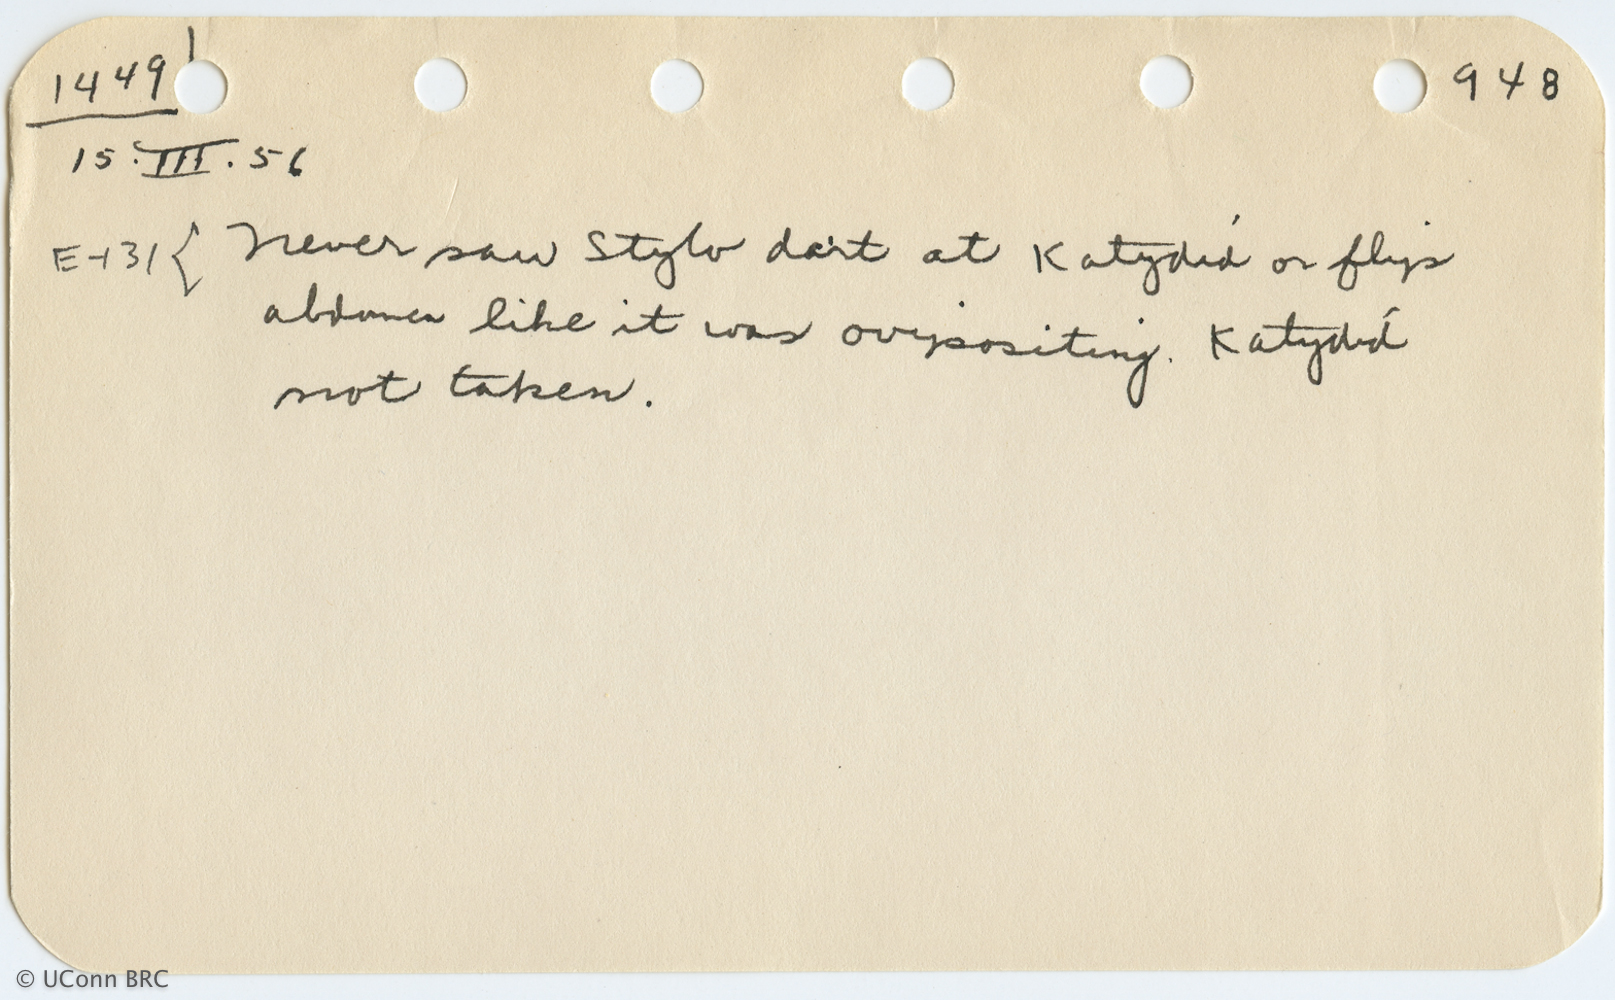 1449
948
15.III.56
E-131 { Never saw Stylo dart at Katydid or flip
abdomen like it was ovipositing. Katydid
not taken.
© UConn BRC